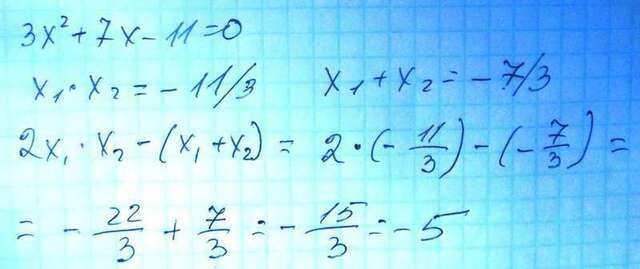 3x² + 7x - 11 = 0
x₁ · x₂ = - 11/3 x₁ + x₂ = - 7/3
2x₁ · x₂ - (x₁ + x₂) = 2 · (- 11/3) - (- 7/3) =
= - 22/3 + 7/3 = - 15/3 = - 5